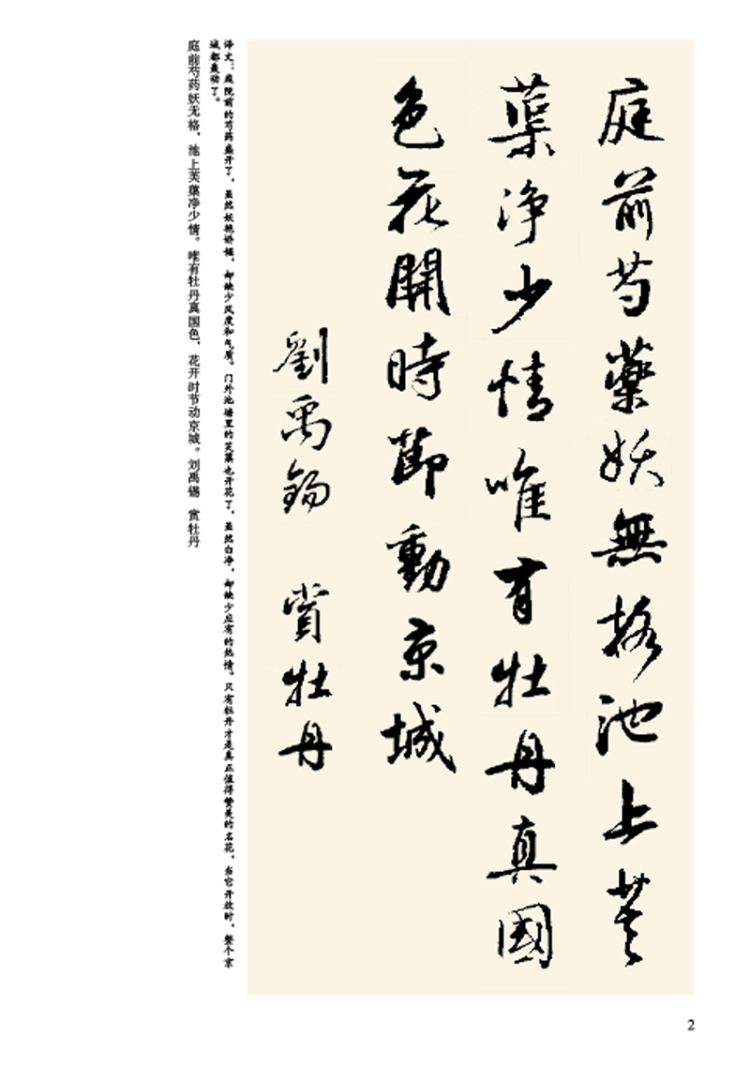 庭前芍藥妖無格池上芙
蕖净少情唯有牡丹真國
色花開時節動京城
劉禹錫 賞牡丹
译文：庭院前的芍药盛开了，虽然妖艳娇媚，却缺少风度和气质。门外池塘里的芙蕖也开花了，虽然白净，却缺少应有的热情。只有牡丹才是真正值得赞美的名花，当它开放时，整个京
城都轰动了。
庭前芍药妖无格，池上芙蕖净少情。唯有牡丹真国色，花开时节动京城。刘禹锡 赏牡丹
2